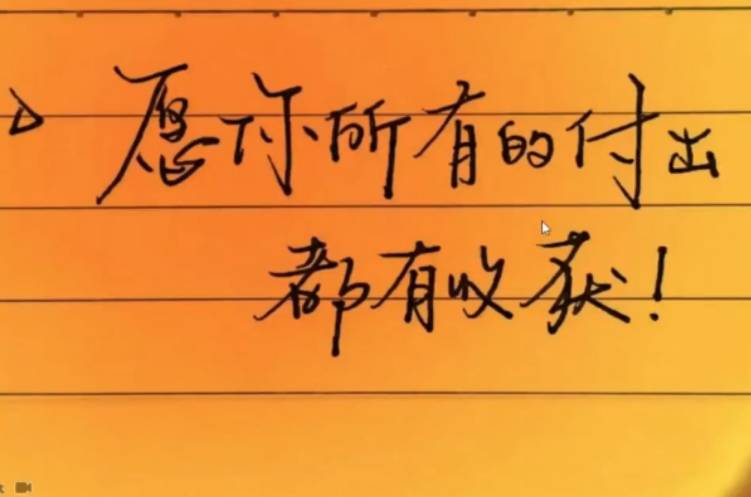 愿你所有的付出
都有收获！